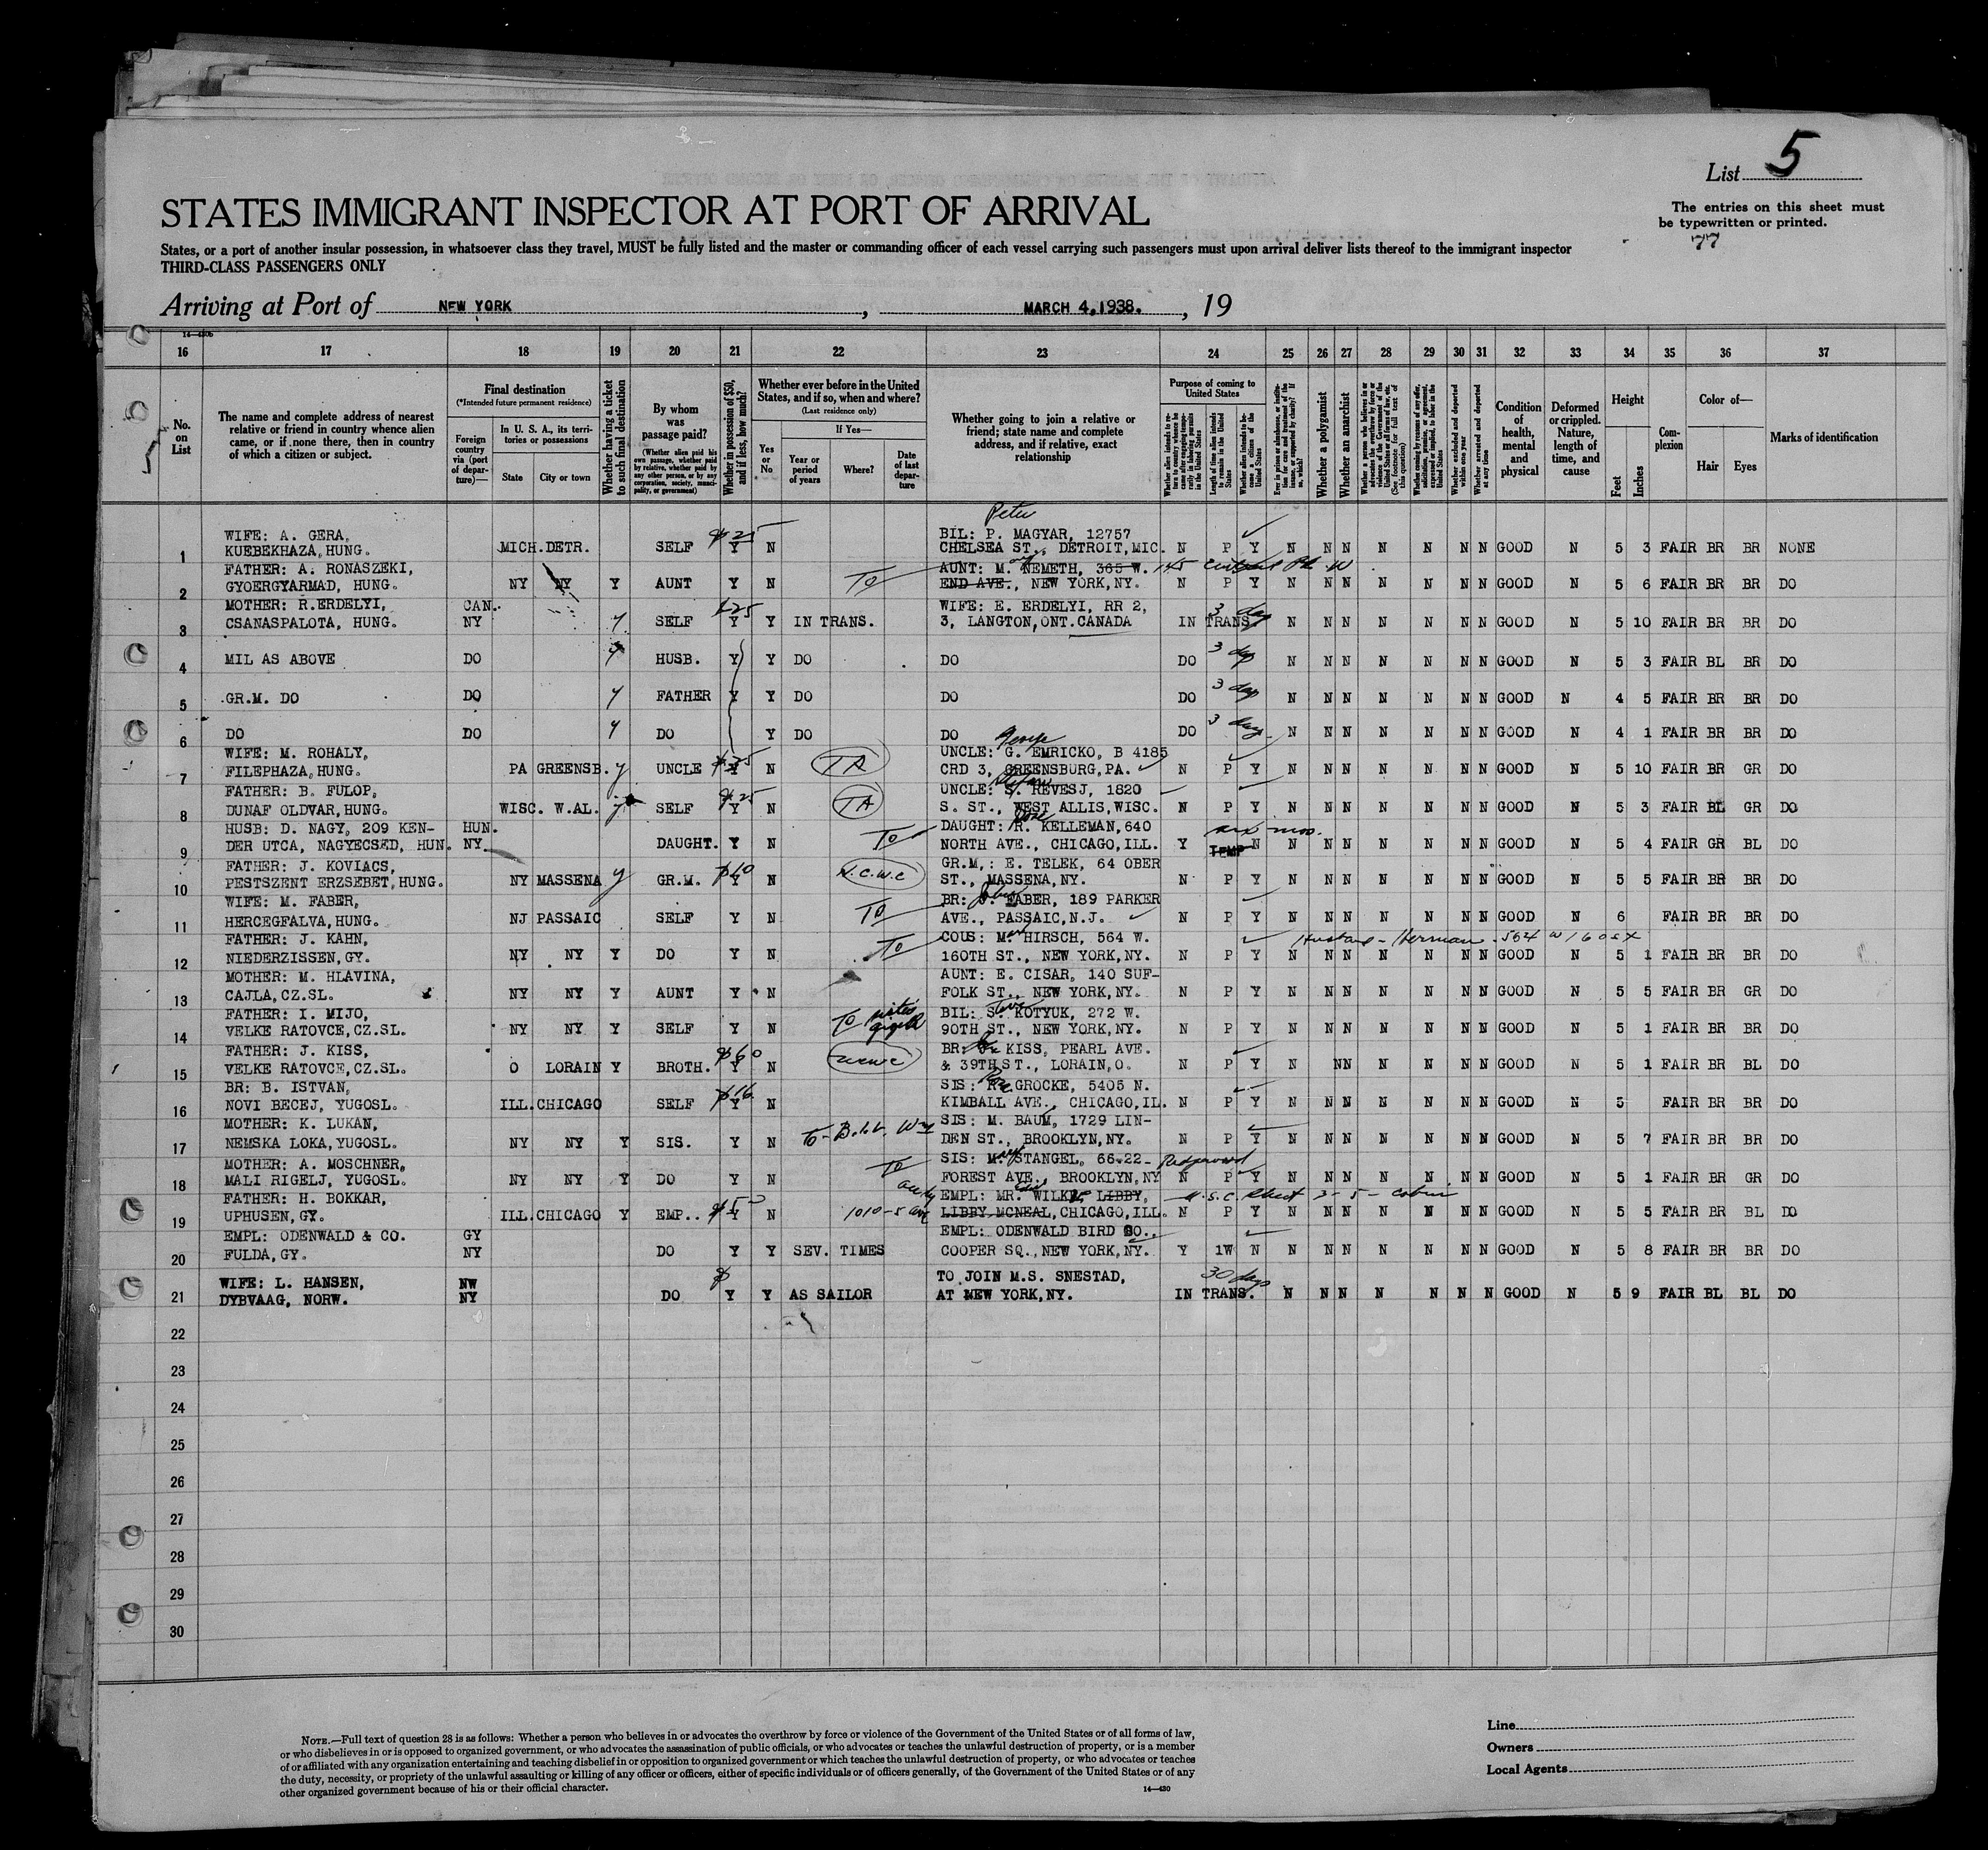 List 5
STATES IMMIGRANT INSPECTOR AT PORT OF ARRIVAL
The entries on this sheet must
be typewritten or printed.
77
States, or a port of another insular possession, in whatsoever class they travel, MUST be fully listed and the master or commanding officer of each vessel carrying such passengers must upon arrival deliver lists thereof to the immigrant inspector
THIRD-CLASS PASSENGERS ONLY
Arriving at Port of NEW YORK, MARCH 4,1938., 19
16 17 18 19 20 21 22 23 24 25 26 27 28 29 30 31 32 33 34 35 36 37
No. on List
The name and complete address of nearest
relative or friend in country whence alien
came, or if none there, then in country
of which a citizen or subject.
Final destination
(*Intended future permanent residence)
Foreign country via (port of departure)—
In U. S. A., its territories or possessions
State
City or town
Whether having a ticket to such final destination
By whom was passage paid?
(Whether alien paid his own passage, whether paid by relative, whether paid by any other person, or by any corporation, society, municipality, or government)
Whether in possession of $50, and if less, how much?
Whether ever before in the United States, and if so, when and where?
(Last residence only)
Yes or No
If Yes—
Year or period of years
Where?
Date of last departure
Whether going to join a relative or
friend; state name and complete
address, and if relative, exact
relationship
Purpose of coming to United States
Whether alien intends to return to country whence he came after engaging temporarily in laboring pursuits in the United States
Length of time alien intends to remain in the United States
Whether alien intends to become a citizen of the United States
Whether a polygamist
Whether an anarchist
Whether excluded and deported within one year
Whether arrested and deported at any time
Condition of health, mental and physical
Deformed or crippled. Nature, length of time, and cause
Height
Feet
Inches
Complexion
Color of—
Hair
Eyes
Marks of identification
Peter
WIFE: A. GERA, $25 BIL: P. MAGYAR, 12757
1 KUEBEKHAZA,HUNG. MICH.DETR. SELF Y N CHELSEA ST., DETROIT,MIC. N P Y N N N N N N N GOOD N 5 3 FAIR BR BR NONE
FATHER: A. RONASZEKI, AUNT: M. NEMETH, 365 W. 145
2 GYOERGYARMAD, HUNG. NY NY Y AUNT Y N TO END AVE., NEW YORK,NY. N P Y N N N N N N N GOOD N 5 6 FAIR BR BR DO
MOTHER: R.ERDELYI, CAN. $25 WIFE: E. ERDELYI, RR 2, 3 days
3 CSANASPALOTA, HUNG. NY Y SELF Y Y IN TRANS. 3, LANGTON,ONT.CANADA IN TRANS. N N N N N N N GOOD N 5 10 FAIR BR BR DO
4 MIL AS ABOVE DO Y HUSB. Y Y DO DO DO 3 days N N N N N N N GOOD N 5 3 FAIR BL BR DO
5 GR.M. DO DO Y FATHER Y Y DO DO DO 3 days N N N N N N N GOOD N 4 5 FAIR BR BR DO
6 DO DO Y DO Y DO DO DO 3 days N N N N N N N GOOD N 4 1 FAIR BR BR DO
George
WIFE: M. ROHALY, UNCLE: G. EMRICKO, B 4185
7 FILEPHAZA,HUNG. PA GREENSB. Y UNCLE $25 Y N TA CRD 3, GREENSBURG,PA. N P Y N N N N N N N GOOD N 5 10 FAIR BR GR DO
FATHER: B. FULOP, $25 UNCLE: S. REVESJ, 1820
8 DUNAF OLDVAR,HUNG. WISC. W.AL. Y SELF Y N TA S. ST., WEST ALLIS,WISC. N P Y N N N N N N N GOOD N 5 3 FAIR BL GR DO
HUSB: D. NAGY, 209 KEN- HUN. DAUGHT: R. KELLEMAN,640 six mos.
9 DER UTCA, NAGYECSED, HUN. NY DAUGHT. Y N TO NORTH AVE., CHICAGO,ILL. Y TEMP N N N N N N N N GOOD N 5 4 FAIR GR BL DO
FATHER: J. KOVIACS, GR.M,: E. TELEK, 64 OBER
10 PESTSZENT ERZSEBET,HUNG. NY MASSENA Y GR.M. $10 Y N N.C.W.C ST., MASSENA,NY. N P Y N N N N N N N GOOD N 5 5 FAIR BR BR DO
WIFE: M. FABER, BR: J. FABER, 189 PARKER
11 HERCEGFALVA,HUNG. NJ PASSAIC SELF Y N TO AVE., PASSAIC,N.J. N P Y N N N N N N N GOOD N 6 FAIR BR BR DO
FATHER: J. KAHN, COUS: M. HIRSCH, 564 W. Husband - Herman - 564 W 160 St
12 NIEDERZISSEN,GY. NY NY Y DO Y N TO 160TH ST., NEW YORK,NY. N P Y N N N N N N N GOOD N 5 1 FAIR BR BR DO
MOTHER: M. HLAVINA, AUNT: E. CISAR, 140 SUF-
13 CAJLA,CZ.SL. NY NY Y AUNT Y N FOLK ST., NEW YORK,NY. N P Y N N N N N N N GOOD N 5 5 FAIR BR GR DO
FATHER: I. MIJO, sister BIL: S. KOTYUK, 272 W.
14 VELKE RATOVCE,CZ.SL. NY NY Y SELF Y N TO 90TH ST., NEW YORK,NY. N P Y N N N N N N N GOOD N 5 1 FAIR BR BR DO
FATHER: J. KISS, $60 BR: KISS, PEARL AVE.
15 VELKE RATOVCE,CZ.SL. O LORAIN Y BROTH. Y N NCWC & 39TH ST., LORAIN,O. N P Y N N N N N N N GOOD N 5 1 FAIR BR BL DO
BR: B. ISTVAN, $16 SIS: R. GROCKE, 5405 N.
16 NOVI BECEJ, YUGOSL. ILL.CHICAGO SELF Y N KIMBALL AVE., CHICAGO,IL. N P Y N N N N N N N GOOD N 5 FAIR BR BR DO
MOTHER: K. LUKAN, SIS: M. BAUM, 1729 LIN-
17 NEMSKA LOKA,YUGOSL. NY NY Y SIS. Y N TO - B.i.l. Wm DEN ST., BROOKLYN,NY. N P Y N N N N N N N GOOD N 5 7 FAIR BR BR DO
MOTHER: A. MOSCHNER, TO SIS: M. STANGEL, 66-22- Ridgewood
18 MALI RIGELJ, YUGOSL. NY NY Y DO Y N FOREST AVE., BROOKLYN,NY N P Y N N N N N N N GOOD N 5 1 FAIR BR GR DO
FATHER: H. BOKKAR, EMPL: MR. WILKE, LIBBY,
19 UPHUSEN,GY. ILL.CHICAGO Y EMP.. $50 Y N 1010-5 Ave LIBBY MCNEAL,CHICAGO,ILL. N P Y N N N N N N N GOOD N 5 5 FAIR BR BL DO
EMPL: ODENWALD & CO. GY EMPL: ODENWALD BIRD CO.,
20 FULDA,GY. NY DO Y Y SEV. TIMES COOPER SQ.,NEW YORK,NY. Y 1W N N N N N N N N GOOD N 5 8 FAIR BR BR DO
WIFE: L. HANSEN, NW $ TO JOIN M.S. SNESTAD, 30 days
21 DYBVAAG, NORW. NY DO Y Y AS SAILOR AT NEW YORK,NY. IN TRANS. N N N N N N N GOOD N 5 9 FAIR BL BL DO
22
23
24
25
26
27
28
29
30
NOTE.—Full text of question 28 is as follows: Whether a person who believes in or advocates the overthrow by force or violence of the Government of the United States or of all forms of law,
or who disbelieves in or is opposed to organized government, or who advocates the assassination of public officials, or who advocates or teaches the unlawful destruction of property, or is a member
of or affiliated with any organization entertaining and teaching disbelief in or opposition to organized government or which teaches the unlawful destruction of property, or who advocates or teaches
the duty, necessity, or propriety of the unlawful assaulting or killing of any officer or officers, either of specific individuals or of officers generally, of the Government of the United States or of any
other organized government because of his or their official character.
14—430
Line
Owners
Local Agents